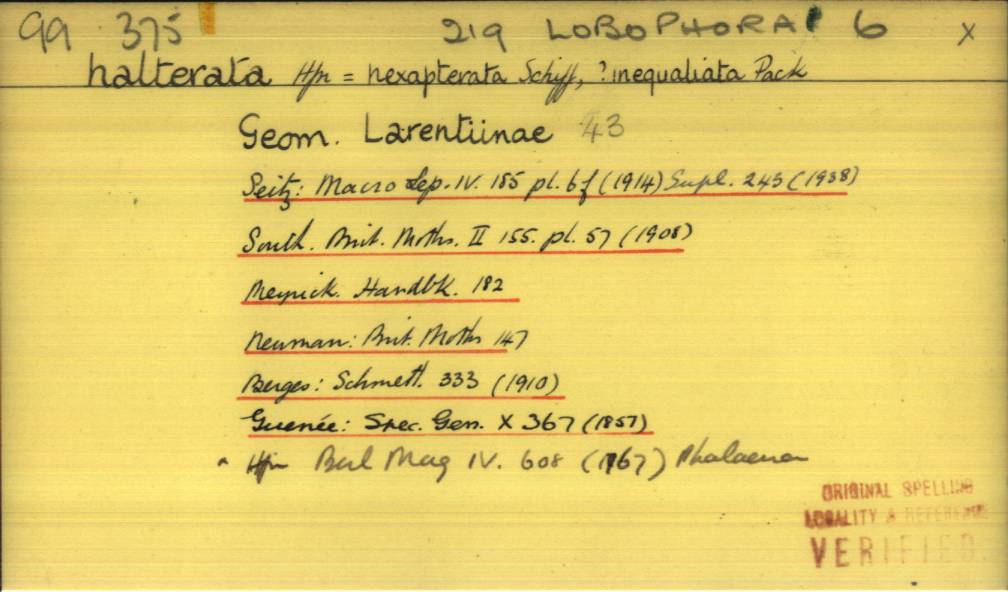 99 375 219 LOBOPHORA 6 x
halterata Hfn = hexapterata Schiff, ? inequaliata Pack
Geom. Larentiinae 43
Seitz: Macro Lep. IV. 185 pl. 6f (1914) Supl. 243 (1938)
South. Brit. Moths. II 155. pl. 57 (1908)
Meyrick. Handbk. 182
Newman: Brit. Moths 147
Berges: Schmett. 333 (1910)
Guenée: Spec. Gen. X 367 (1857)
Hfn Berl Mag IV. 608 (1767) Phalaena
ORIGINAL SPELLING
LOCALITY & REFERENCE
VERIFIED.